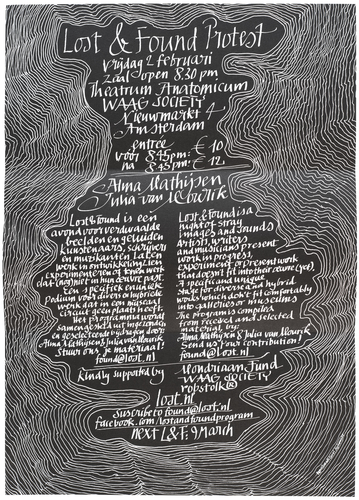 Lost & Found Protest
vrijdag 2 februari
zaal open 8.30 pm
Theatrum Anatomicum
WAAG SOCIETY
Nieuwmarkt 4
Amsterdam
entrée
voor 8.45pm: € 10,
na 8.45pm: € 12,
Alma Mathijsen
Julia van Mourik
Lost & found is een
avond voor verdwaalde
beelden en geluiden
kunstenaars, schrijvers
en muzikanten laten
werk in ontwikkeling zien
experimenteren of tonen werk
dat (nog) niet in hun oeuvre past.
Een specifiek en uniek
podium voor divers en hybride
werk dat in een museaal
circuit geen plaats heeft.
Het programma wordt
samengesteld uit ingezonden
en geselecteerde bijdragen door:
Alma Mathijsen & Julia van Mourik
Stuur ons je materiaal!
found@lost.nl
Lost & found is a
night of stray
images and sounds
Artists, writers
and musicians present
work in progress,
experiment or present work
that doesn't fit into their oeuvre (yet).
A specific and unique
stage for diverse and hybrid
works which don't fit comfortably
into galleries or museums
The program is compiled
from received and selected
material by:
Alma Mathijsen & Julia van Mourik
Send us your contribution!
found@lost.nl
kindly supported by
Mondriaan Fund
WAAG SOCIETY
robstolk®
lost.nl
suscribe to found@lost.nl
facebook.com/lostandfoundprogram
next L&F: 9 March